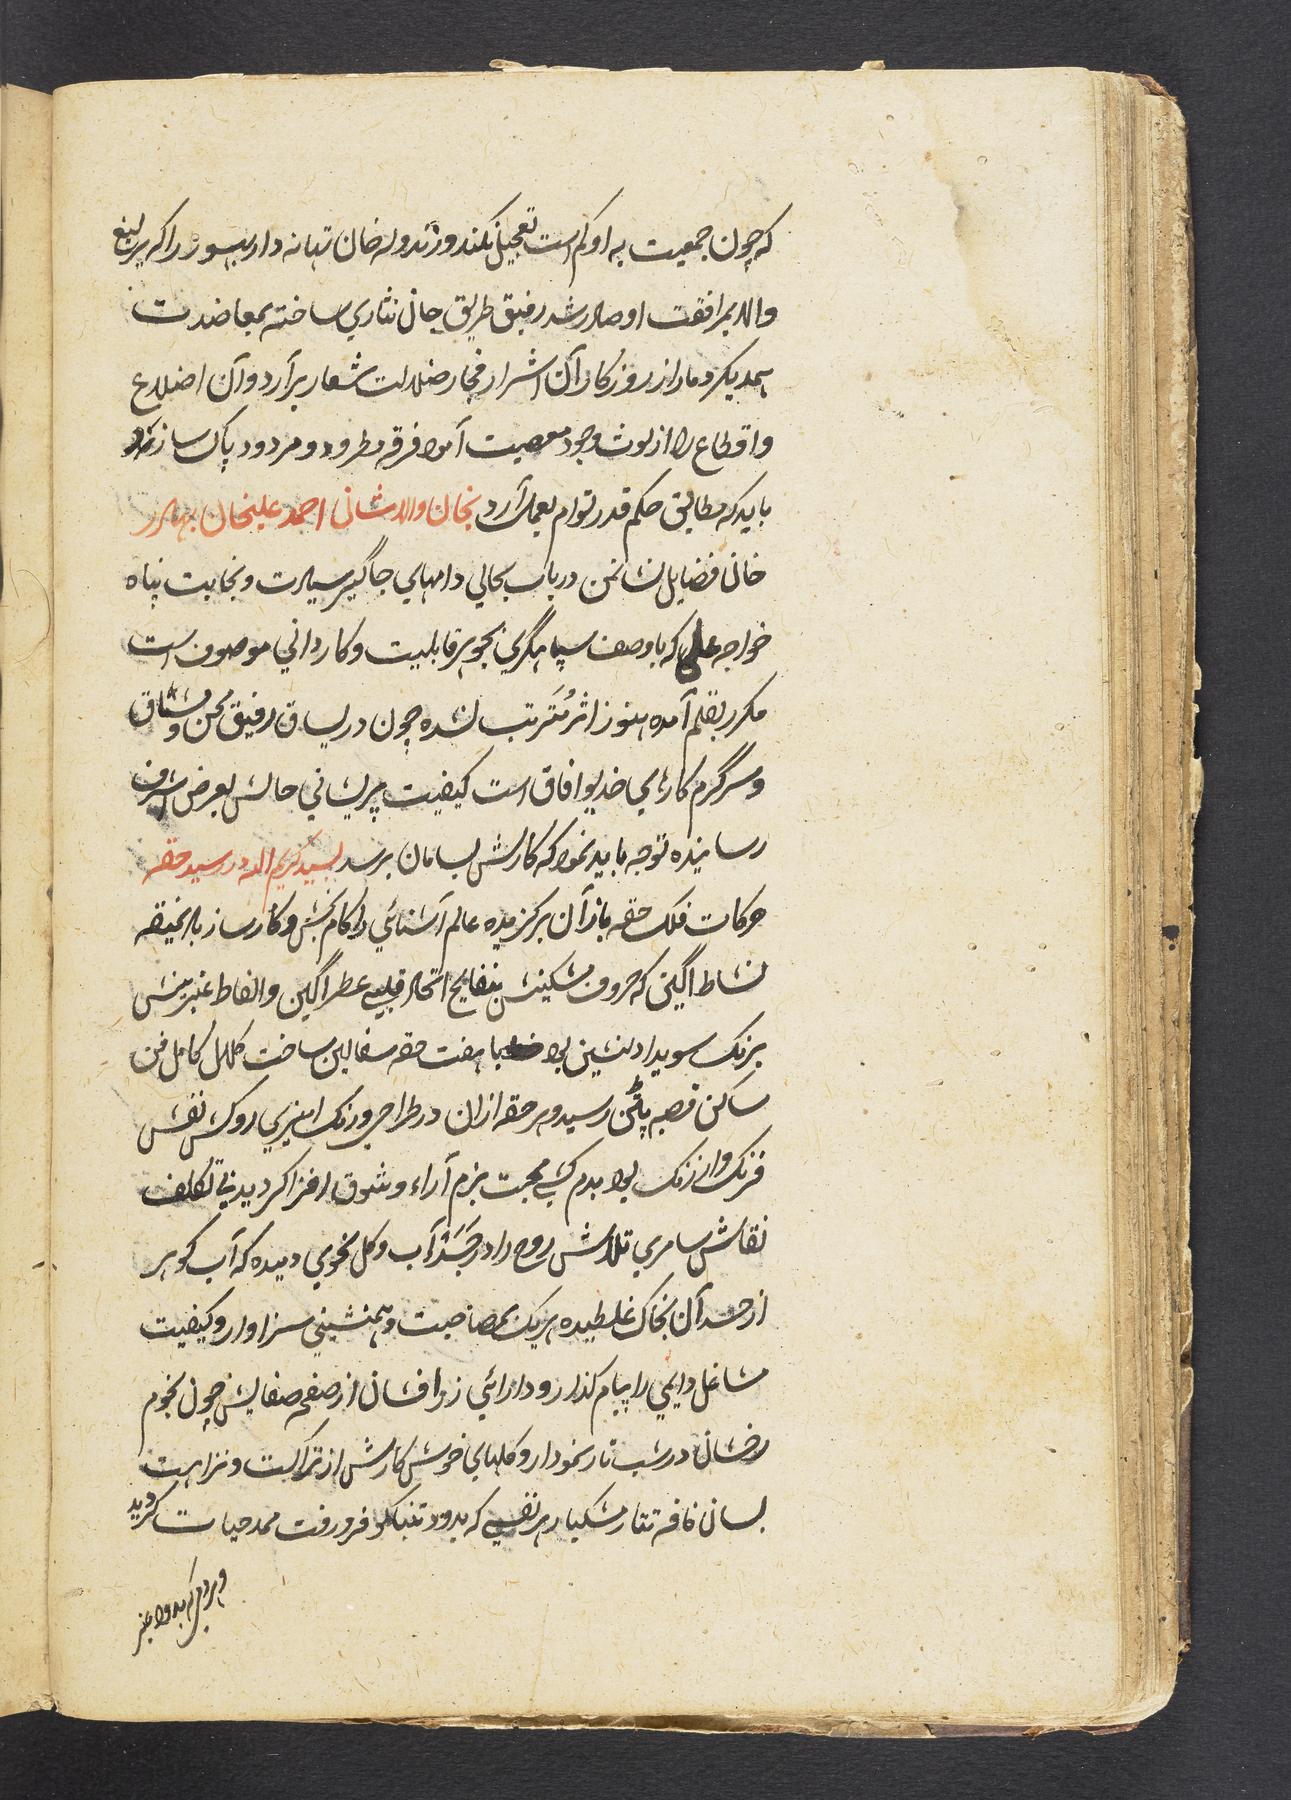 که چون جمعیت به او کم است تعجیل نکند و زندوله خان تهانه دار بیهور را که یرلیغ
والا بمرافقت او صادر شد رفیق طریق جان نثاری ساخته بمعاضدت
همدیگر دمار از روزگار آن اشرار فجار ضلالت شعار برآرد و آن اضلاع
و اقطاع را از لوث وجود معصیت آمود فرقه مطرود و مردود پاک سازند
باید که مطابق حکم قدر توام بعمل آرد بخان والا شان احمد علیخان بهادر
خان فضایل نشان من در باب بحالی دامهای جاگیر سیادت و نجابت پناه
خواجه علی که با وصف سپاهگری بجوهر قابلیت و کاردانی موصوف است
مکرر بقلم آمده هنوز اثر مترتب نشده چون در یساق رفیق محن و مشاق
و سرگرم کارهای خدیو افاق است کیفیت پریشانی حالش بعرض اشرف
رسانیده توجه باید نمود که کارش بسامان برسد بسید کریم الله در رسید حقه
حرکات فلک حقه باز آن برگزیده عالم آشنائی را کام بخش و کارساز باد نمیقه
نشاط اگین که حروف مشکینش بنفایح اتحاد قلبی عطر اگین و الفاظ عنبرینش
برنگ سویدا دلنشین بود با هفت حقه سفالین ساخت کلال کامل فن
ساکن قصبه پاتن رسید و هر حقه ازان در طراحی و رنگ امیزی روکش نقش
فرنگ و ارژنگ بود بدم کشی محبت بزم آراء و شوق افزا گردید بی تکلف
نقاش سامری تلاش روح را در جسد آب و گل بخوبی دمیده که آب گوهر
از حسد آن بخاک غلطیده هر یک بمصاحبت و همنشینی سزاوار و کیفیت
مشاغل دایمی را پیام گذار رود ارائی زر افشان از صفحه صفایش چون نجوم
رخشان در شب تار نمودار و گلهای خوش کارش از نزاکت و نزاهت
بسان نافه تتار مشکبار هر نفسی که بدود تنباکو فرو رفت ممد حیات گردید